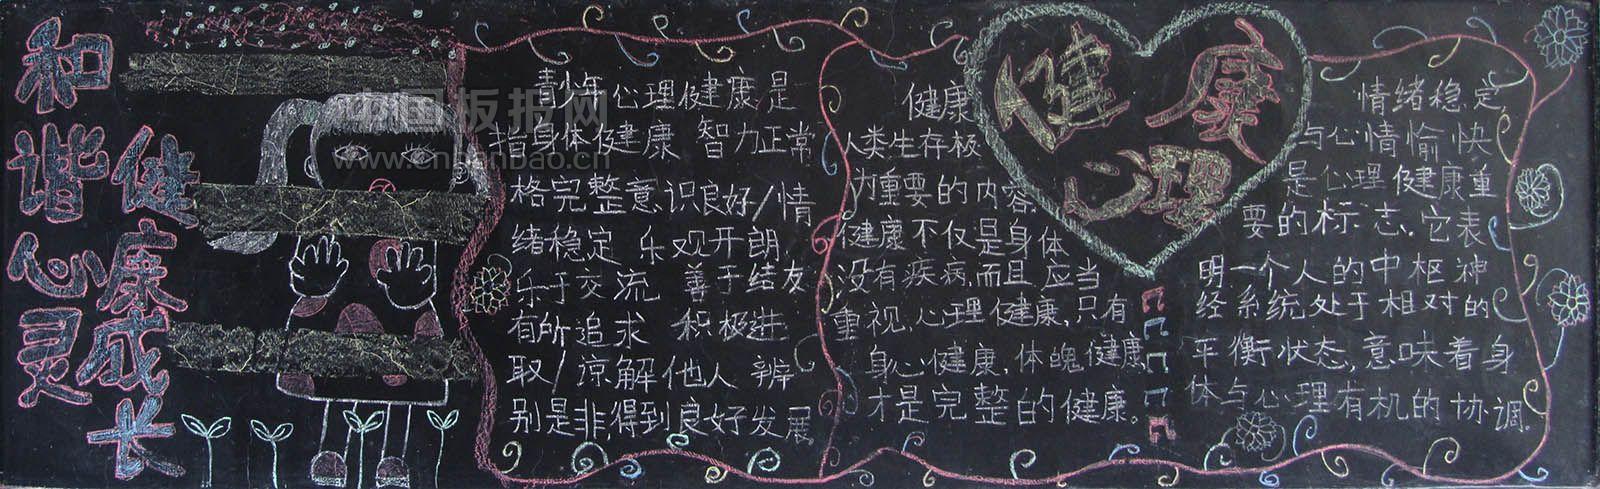 和谐心灵
健康成长
中国板报网
青少年心理健康是
指身体健康 智力正常
格完整意识良好/情
绪稳定 乐观开朗
乐于交流 善于结友
有所追求 积极进
取/谅解他人 辨
别是非,得到良好发展
健康
人类生存极
为重要的内容
健康不仅是身体
没有疾病,而且应当
重视,心理健康,只有
身心健康,体魄健康
才是完整的健康。
健康
心理
情绪稳定
与心情愉快
是心理健康重
要的标志.它表
明一个人的中枢神
经系统处于相对的
平衡状态,意味着身
体与心理有机的协调.